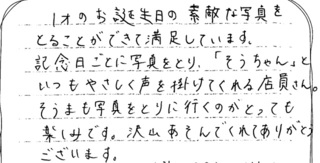 1才のお誕生日の素敵な写真を
とることができて満足しています。
記念日ごとに写真をとり、「そうちゃん」と
いつもやさしく声を掛けてくれる店員さん。
そうまも写真をとりに行くのがとっても
楽しみです。沢山あそんでくれてありがとう
ございます。